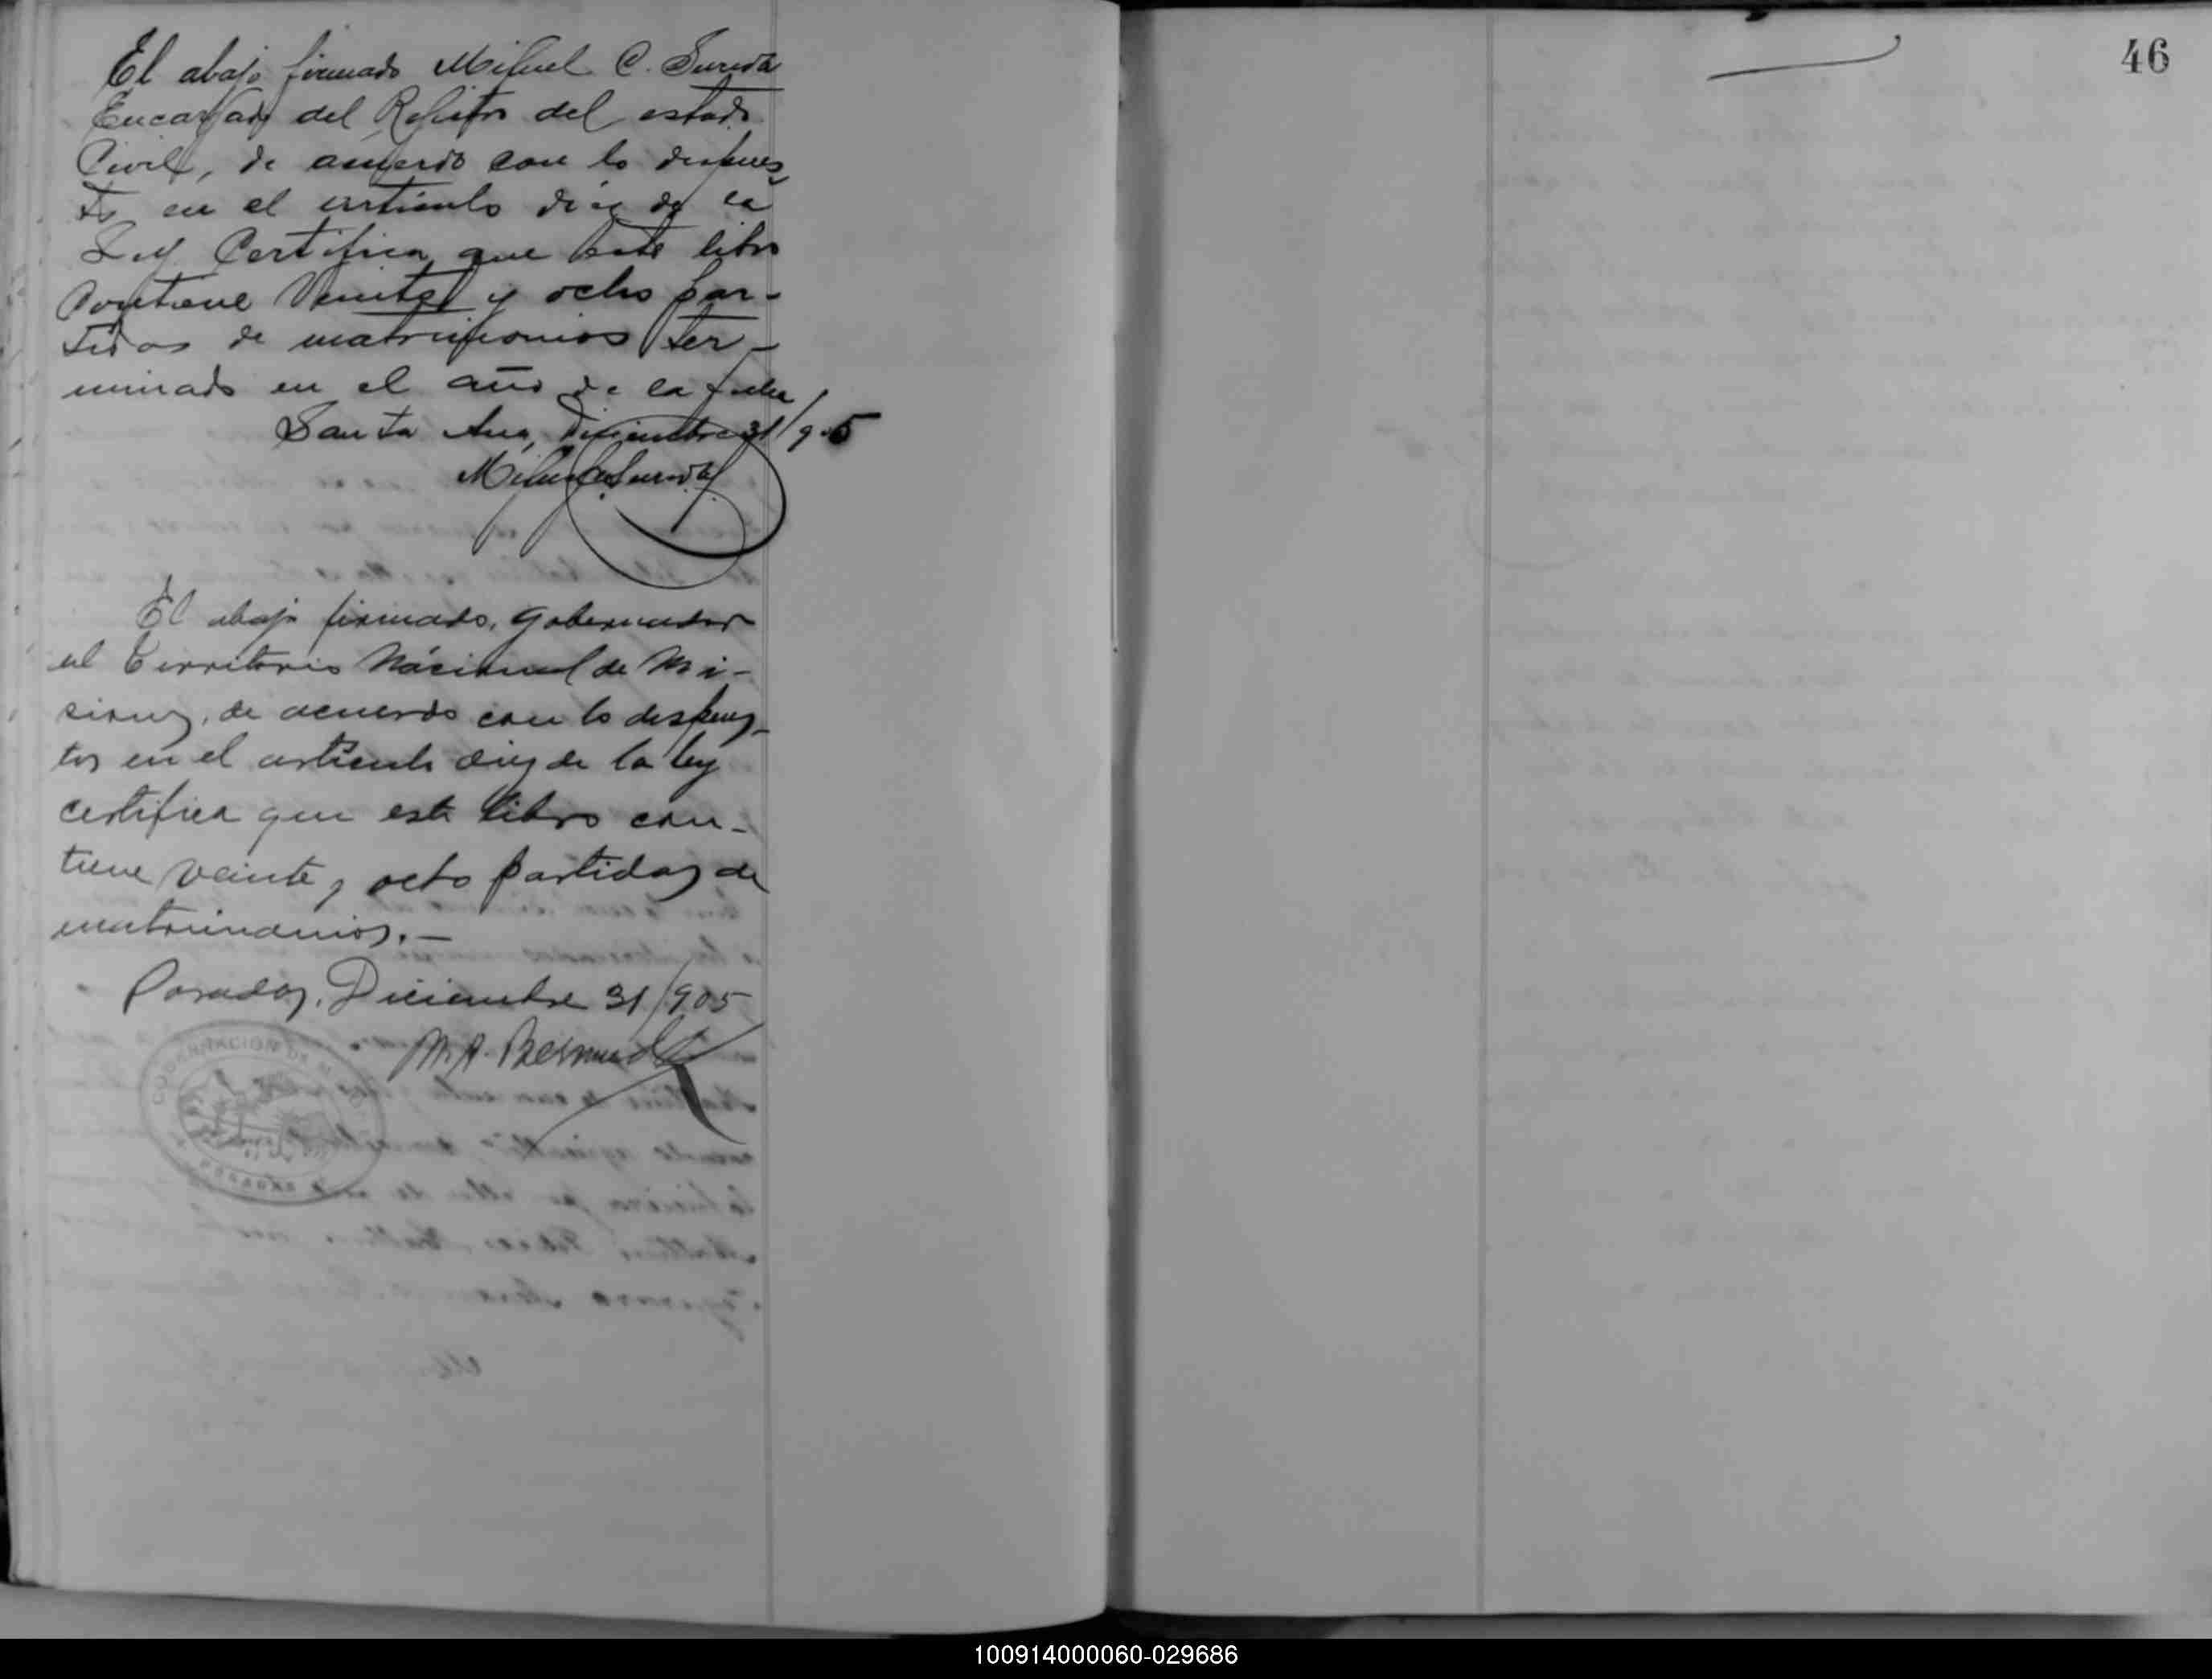 El abajo firmado Miguel C. Sureda
Encargado del Registro del estado
Civil, de acuerdo con lo dispues
to en el artículo diez de la
Ley Certifica que este libro
Contiene Veinte y ocho par-
tidas de matrimonios ter-
minado en el año de la fecha
Santa Ana, Diciembre 31/905
Miguel C. Sureda
El abajo firmado, Gobernador
el Territorio Nacional de Mi-
siones, de acuerdo con lo dispues-
tos en el articulo diez de la ley
certifica que este libro con-
tiene veinte y ocho partidas de
matrimonios.—
Posadas, Diciembre 31/905
M. A. Bermudez
GOBERNACION DE
POSADAS
46
100914000060-029686